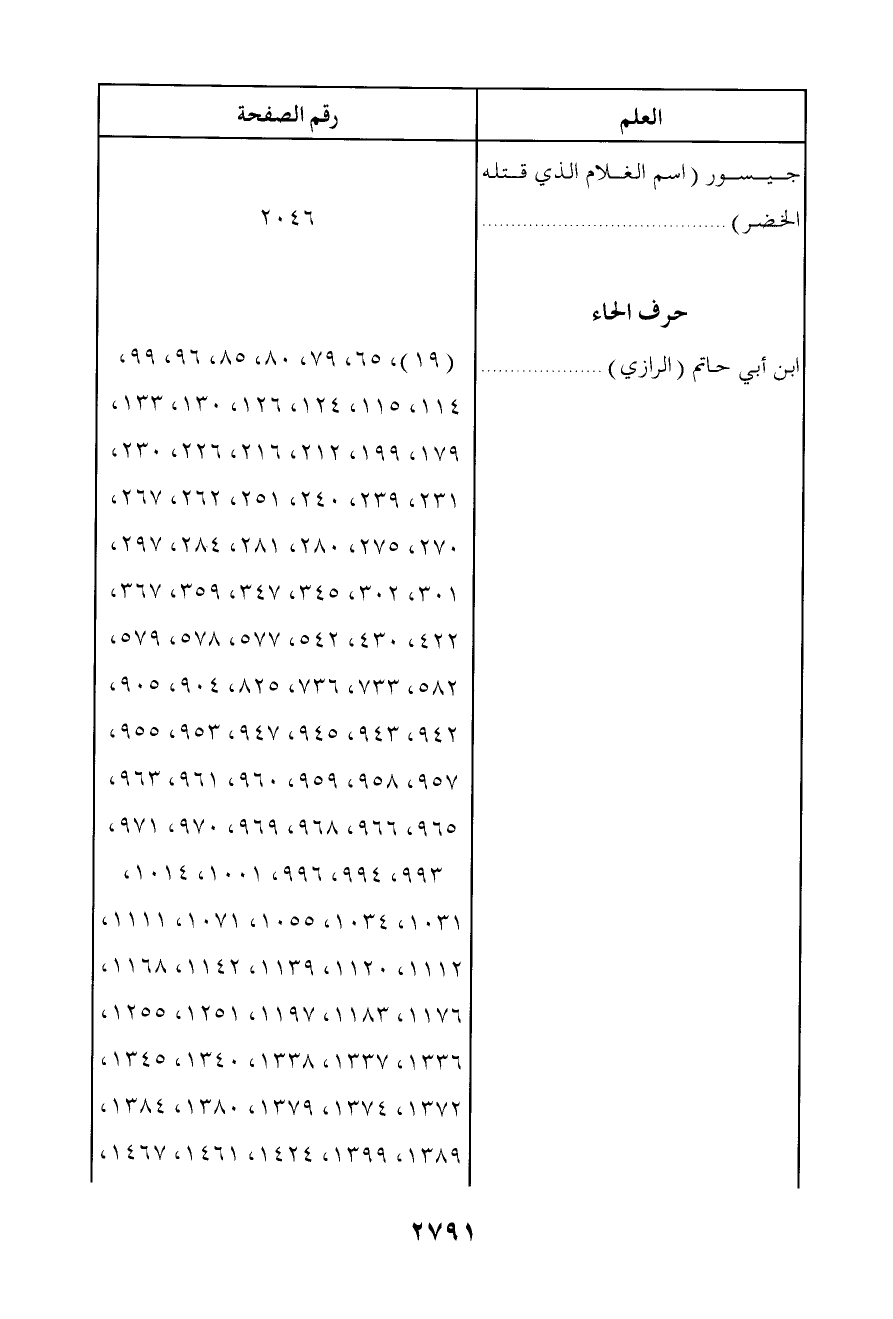 العلم	رقم الصفحة
جيسور (اسم الغلام الذي قتله
الخضر) ........................................	٢٠٤٦
حرف الحاء
ابن أبي حاتم (الرازي) .....................	(١٩)، ٦٥، ٧٩، ٨٠، ٨٥، ٩٦، ٩٩،
١١٤، ١١٥، ١٢٤، ١٢٦، ١٣٠، ١٣٣،
١٧٩، ١٩٩، ٢١٢، ٢١٦، ٢٢٦، ٢٣٠،
٢٣١، ٢٣٩، ٢٤٠، ٢٥١، ٢٦٢، ٢٦٧،
٢٧٠، ٢٧٥، ٢٨٠، ٢٨١، ٢٨٤، ٢٩٧،
٣٠١، ٣٠٢، ٣٤٥، ٣٤٧، ٣٥٩، ٣٦٧،
٤٢٢، ٤٣٠، ٥٤٢، ٥٧٧، ٥٧٨، ٥٧٩،
٥٨٢، ٧٣٣، ٧٣٦، ٨٢٥، ٩٠٤، ٩٠٥،
٩٤٢، ٩٤٣، ٩٤٥، ٩٤٧، ٩٥٣، ٩٥٥،
٩٥٧، ٩٥٨، ٩٥٩، ٩٦٠، ٩٦١، ٩٦٣،
٩٦٥، ٩٦٦، ٩٦٨، ٩٦٩، ٩٧٠، ٩٧١،
٩٩٣، ٩٩٤، ٩٩٦، ١٠٠١، ١٠١٤،
١٠٣١، ١٠٣٤، ١٠٥٥، ١٠٧١، ١١١١،
١١١٢، ١١٢٠، ١١٣٩، ١١٤٢، ١١٦٨،
١١٧٦، ١١٨٣، ١١٩٧، ١٢٥١، ١٢٥٥،
١٣٣٦، ١٣٣٧، ١٣٣٨، ١٣٤٠، ١٣٤٥،
١٣٧٢، ١٣٧٤، ١٣٧٩، ١٣٨٠، ١٣٨٤،
١٣٨٩، ١٣٩٩، ١٤٢٤، ١٤٦١، ١٤٦٧،
٢٧٩١